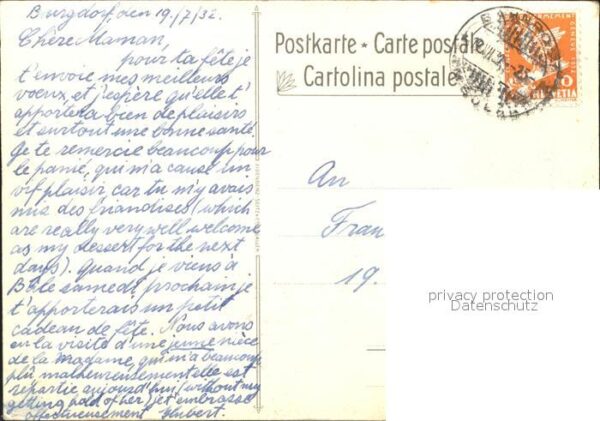 Burgdorf, den 19./7/32.
Chère Maman,
pour ta fête je
t'envoie mes meilleurs
voeux, et j'espère qu'elle t'
apportera bien de plaisirs
et surtout une bonne santé.
Je te remercie beaucoup pour
le panié, qui m'a causé un
vif plaisir car tu m'y avais
mis des friandises (which
are really very well welcome
as my dessert for the next
days). Quand je viens à
Bâle samedi prochain je
t'apporterais un petit
cadeau de fête. Nous avons
eu la visite d'une jeune nièce
de la Madame, qui m'a beaucoup
plû malheureusement elle est
repartie aujourd'hui (without my
getting hold of her) je t'embrasse
affectueusement Hubert.
Postkarte * Carte postale
Cartolina postale
HELVETIA
An
Fran
19.
privacy protection
Datenschutz